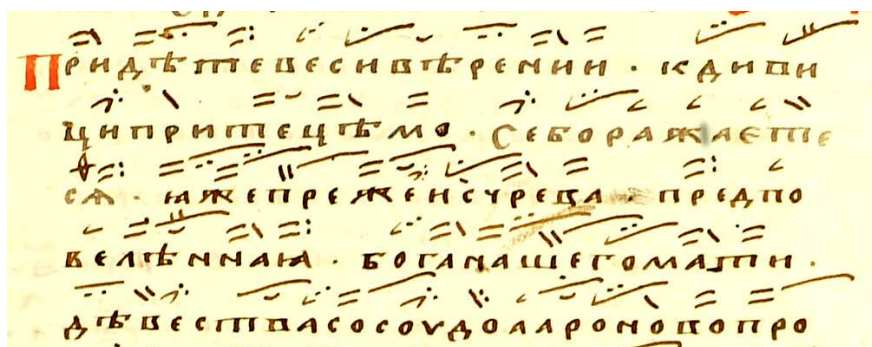 Придѣте веси вѣрении · к дѣви
ци притецѣмо · Се бо ражаєте
сѧ · ꙗже преже ис чрева · предпо
велѣннаꙗ · бога нашего мати ·
дѣвества сосоудо аароново про